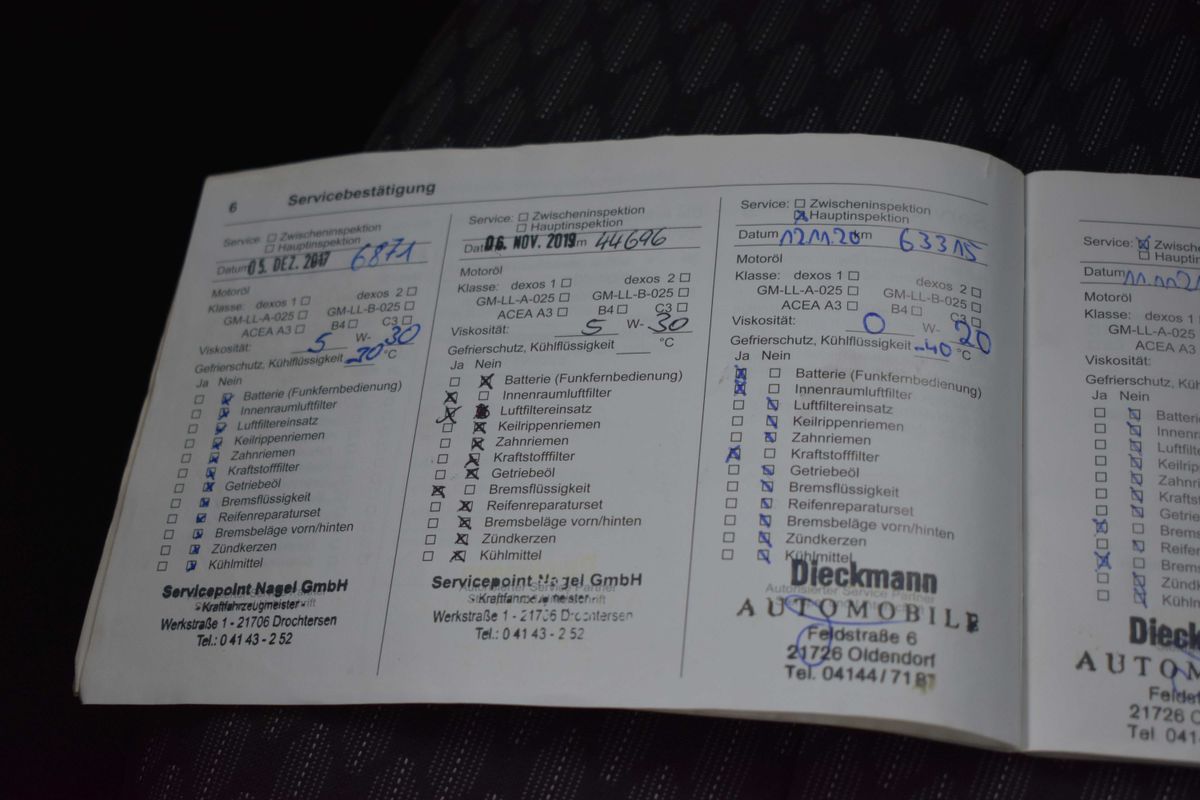 6 Servicebestätigung
Service: ☐ Zwischeninspektion
☐ Hauptinspektion
Datum 05. DEZ. 2017 6871
Motoröl
Klasse: dexos 1 ☐ dexos 2 ☐
GM-LL-A-025 ☐ GM-LL-B-025 ☐
ACEA A3 ☐ B4 ☐ C3 ☐
Viskosität: 5 W- 30
Gefrierschutz, Kühlflüssigkeit -30 °C
Ja Nein
☐ ☒ Batterie (Funkfernbedienung)
☐ ☒ Innenraumluftfilter
☐ ☒ Luftfiltereinsatz
☐ ☒ Keilrippenriemen
☐ ☒ Zahnriemen
☐ ☒ Kraftstofffilter
☐ ☒ Getriebeöl
☐ ☒ Bremsflüssigkeit
☐ ☒ Reifenreparaturset
☐ ☒ Bremsbeläge vorn/hinten
☐ ☒ Zündkerzen
☐ ☒ Kühlmittel
Servicepoint Nagel GmbH
- Kraftfahrzeugmeister -
Werkstraße 1 - 21706 Drochtersen
Tel.: 0 41 43 - 2 52
Service: ☐ Zwischeninspektion
☐ Hauptinspektion
Datum 06. NOV. 2019 km 44696
Motoröl
Klasse: dexos 1 ☐ dexos 2 ☐
GM-LL-A-025 ☐ GM-LL-B-025 ☐
ACEA A3 ☐ B4 ☐ C3 ☐
Viskosität: 5 W- 30
Gefrierschutz, Kühlflüssigkeit °C
Ja Nein
☐ ☒ Batterie (Funkfernbedienung)
☒ ☐ Innenraumluftfilter
☒ ☒ Luftfiltereinsatz
☐ ☒ Keilrippenriemen
☐ ☒ Zahnriemen
☐ ☒ Kraftstofffilter
☐ ☒ Getriebeöl
☒ ☐ Bremsflüssigkeit
☐ ☒ Reifenreparaturset
☐ ☒ Bremsbeläge vorn/hinten
☐ ☒ Zündkerzen
☐ ☒ Kühlmittel
Servicepoint Nagel GmbH
Autorisierter Service Partner
Kraftfahrzeugmeister
Werkstraße 1 - 21706 Drochtersen
Tel.: 0 41 43 - 2 52
Service: ☐ Zwischeninspektion
☒ Hauptinspektion
Datum 12.11.20 km 63315
Motoröl
Klasse: dexos 1 ☐ dexos 2 ☐
GM-LL-A-025 ☐ GM-LL-B-025 ☐
ACEA A3 ☐ B4 ☐ C3 ☐
Viskosität: 0 W- 20
Gefrierschutz, Kühlflüssigkeit -40 °C
Ja Nein
☒ ☐ Batterie (Funkfernbedienung)
☒ ☐ Innenraumluftfilter
☐ ☒ Luftfiltereinsatz
☐ ☒ Keilrippenriemen
☐ ☒ Zahnriemen
☒ ☐ Kraftstofffilter
☐ ☒ Getriebeöl
☐ ☒ Bremsflüssigkeit
☐ ☒ Reifenreparaturset
☐ ☒ Bremsbeläge vorn/hinten
☐ ☒ Zündkerzen
☐ ☒ Kühlmittel
Dieckmann
Autorisierter Service Partner
AUTOMOBILE
Feldstraße 6
21726 Oldendorf
Tel. 04144/71
Service: ☒ Zwisch
☐ Hauptin
Datum 11.11.21
Motoröl
Klasse:
GM-LL
ACEA
Viskosität:
Gefrierschutz, Kühlf
Ja Nein
☐ ☒ Batter
☐ ☒ Innen
☐ ☒ Luftfil
☐ ☒ Keilrip
☐ ☒ Zahnri
☐ ☒ Krafts
☐ ☒ Getrie
☒ ☐ Brems
☐ ☒ Reifen
☒ ☐ Brems
☐ ☒ Zünd
☐ ☒ Kühl
Dieck
AUTOM
Felds
21726 O
Tel. 0414